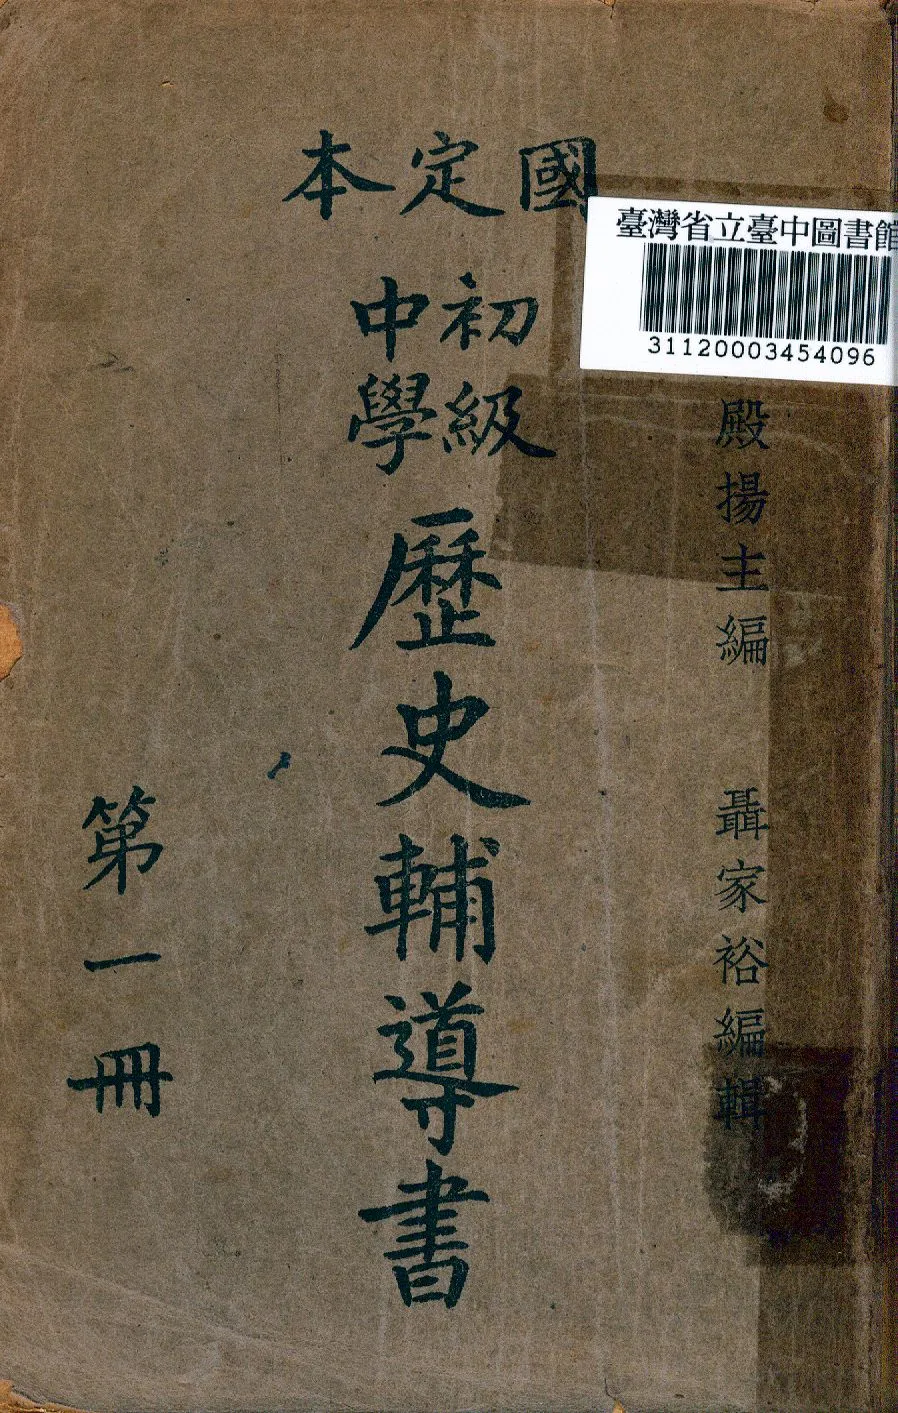 國定本
初級
中學
歷史輔導書
第一冊
殿揚主編 聶家裕編輯
臺灣省立臺中圖書館
31120003454096